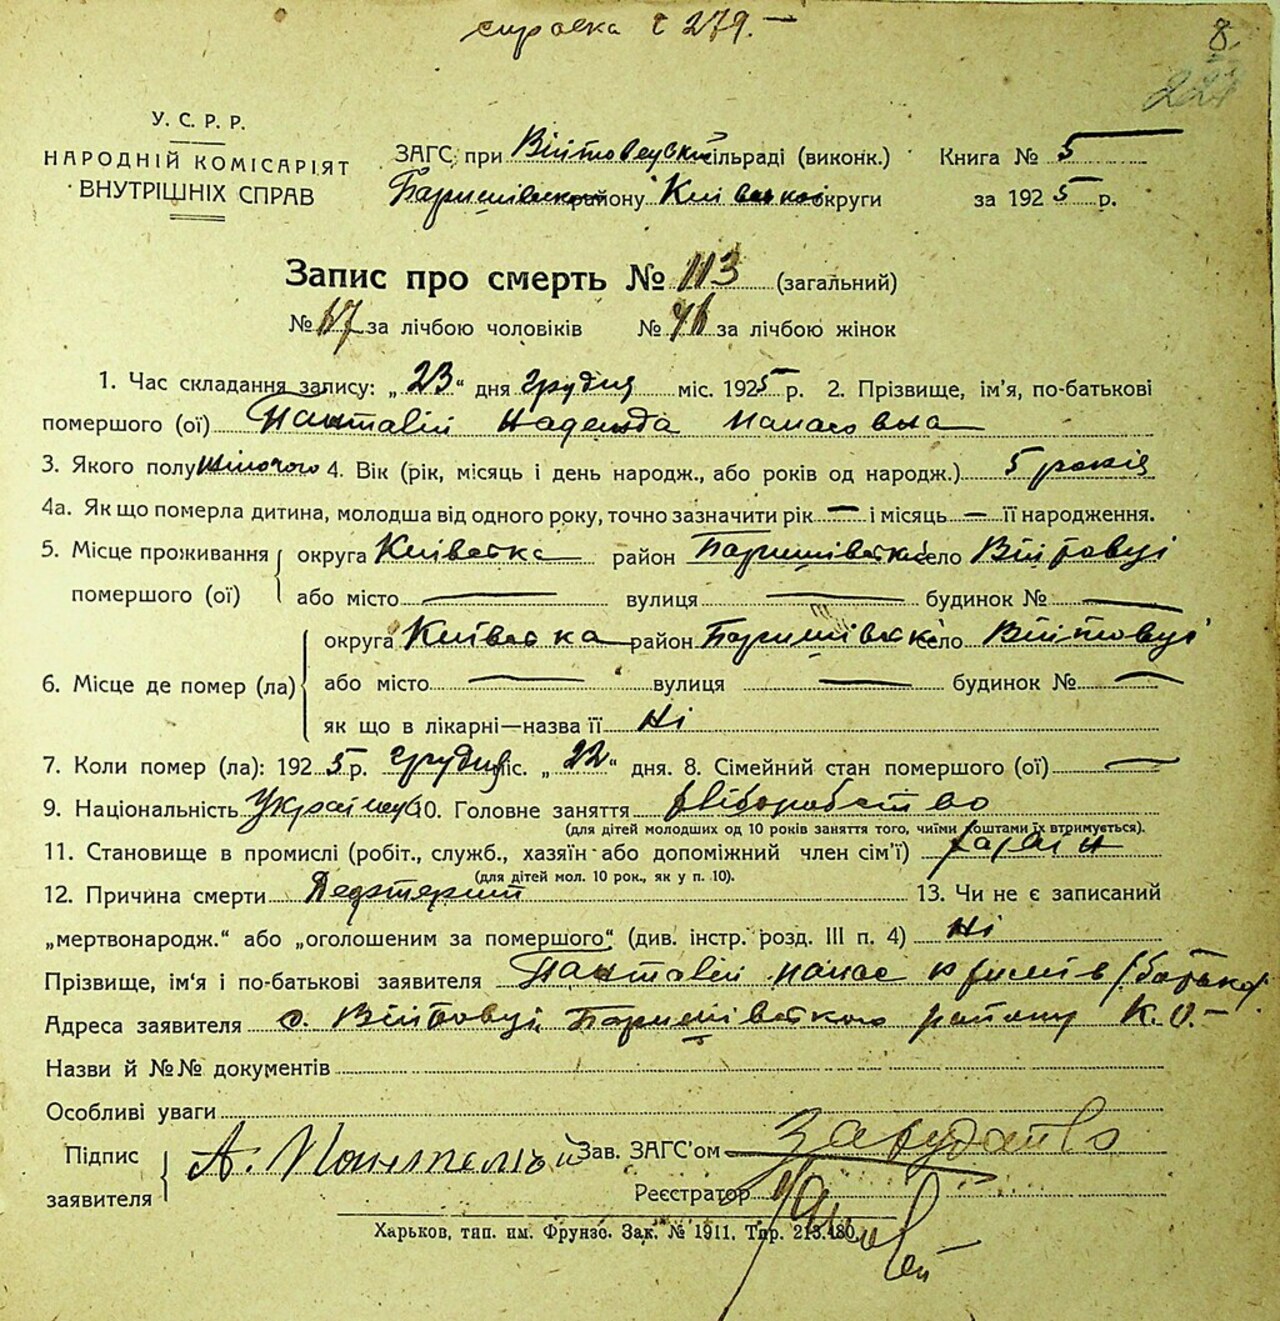 справка с 279.—
8.
227
У. С. Р. Р.
НАРОДНІЙ КОМІСАРІЯТ
ВНУТРІШНІХ СПРАВ
ЗАГС при Війтовецькій сільраді (виконк.) Книга № 5
Баришівського району Київської округи за 1925 р.
Запис про смерть № 113 (загальний)
№ 67 за лічбою чоловіків № 46 за лічбою жінок
1. Час складання запису: „23“ дня грудня міс. 1925 р. 2. Прізвище, ім’я, по-батькові
помершого (ої) Панталій Надежда Панасовна
3. Якого полу жіночого 4. Вік (рік, місяць і день народж., або років од народж.) 5 років
4а. Як що померла дитина, молодша від одного року, точно зазначити рік — і місяць — її народження.
5. Місце проживання помершого (ої) округа Київска район Баришівськ село Війтовці
або місто — вулиця — будинок № —
6. Місце де помер (ла) округа Київска район Баришівськ село Війтовці
або місто — вулиця — будинок № —
як що в лікарні—назва її Ні
7. Коли помер (ла): 1925 р. грудня міс. „22“ дня. 8. Сімейний стан помершого (ої) —
9. Національність Українці 10. Головне заняття хліборобство
(для дітей молодших од 10 років заняття того, чиїми коштами їх втримується).
11. Становище в промислі (робіт., служб., хазяїн або допоміжний член сім’ї) хазяїн
(для дітей мол. 10 рок., як у п. 10).
12. Причина смерти 13. Чи не є записаний
„мертвонародж.“ або „оголошеним за помершого“ (див. інстр. розд. III п. 4) Ні
Прізвище, ім‘я і по-батькові заявителя Панталій Панас (батько)
Адреса заявителя с. Війтовці Баришівського району К. О.—
Назви й №№ документів
Особливі уваги
Підпис заявителя А. Панталій Зав. ЗАГС’ом
Реєстратор
Харьков, тип. им. Фрунзе. Зак. № 1911. Тир. 213.480.